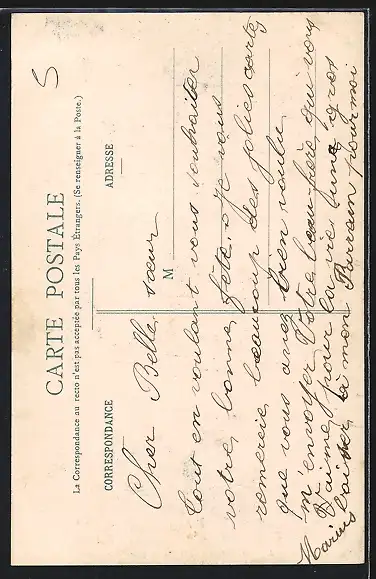 5
CARTE POSTALE
La Correspondance au recto n'est pas acceptée par tous les Pays Étrangers. (Se renseigner à la Poste.)
CORRESPONDANCE
ADRESSE
M
Cher Belle sœur
tout en voulant vous souhaiter
votre bonne fête. Je vous
remercie beaucoup des jolies carte
que vous avez bien voulu
m'envoyer Votre beau frère qui vous
aime pour la vie Une gros
baiser à mon Parrain pour moi
Marius